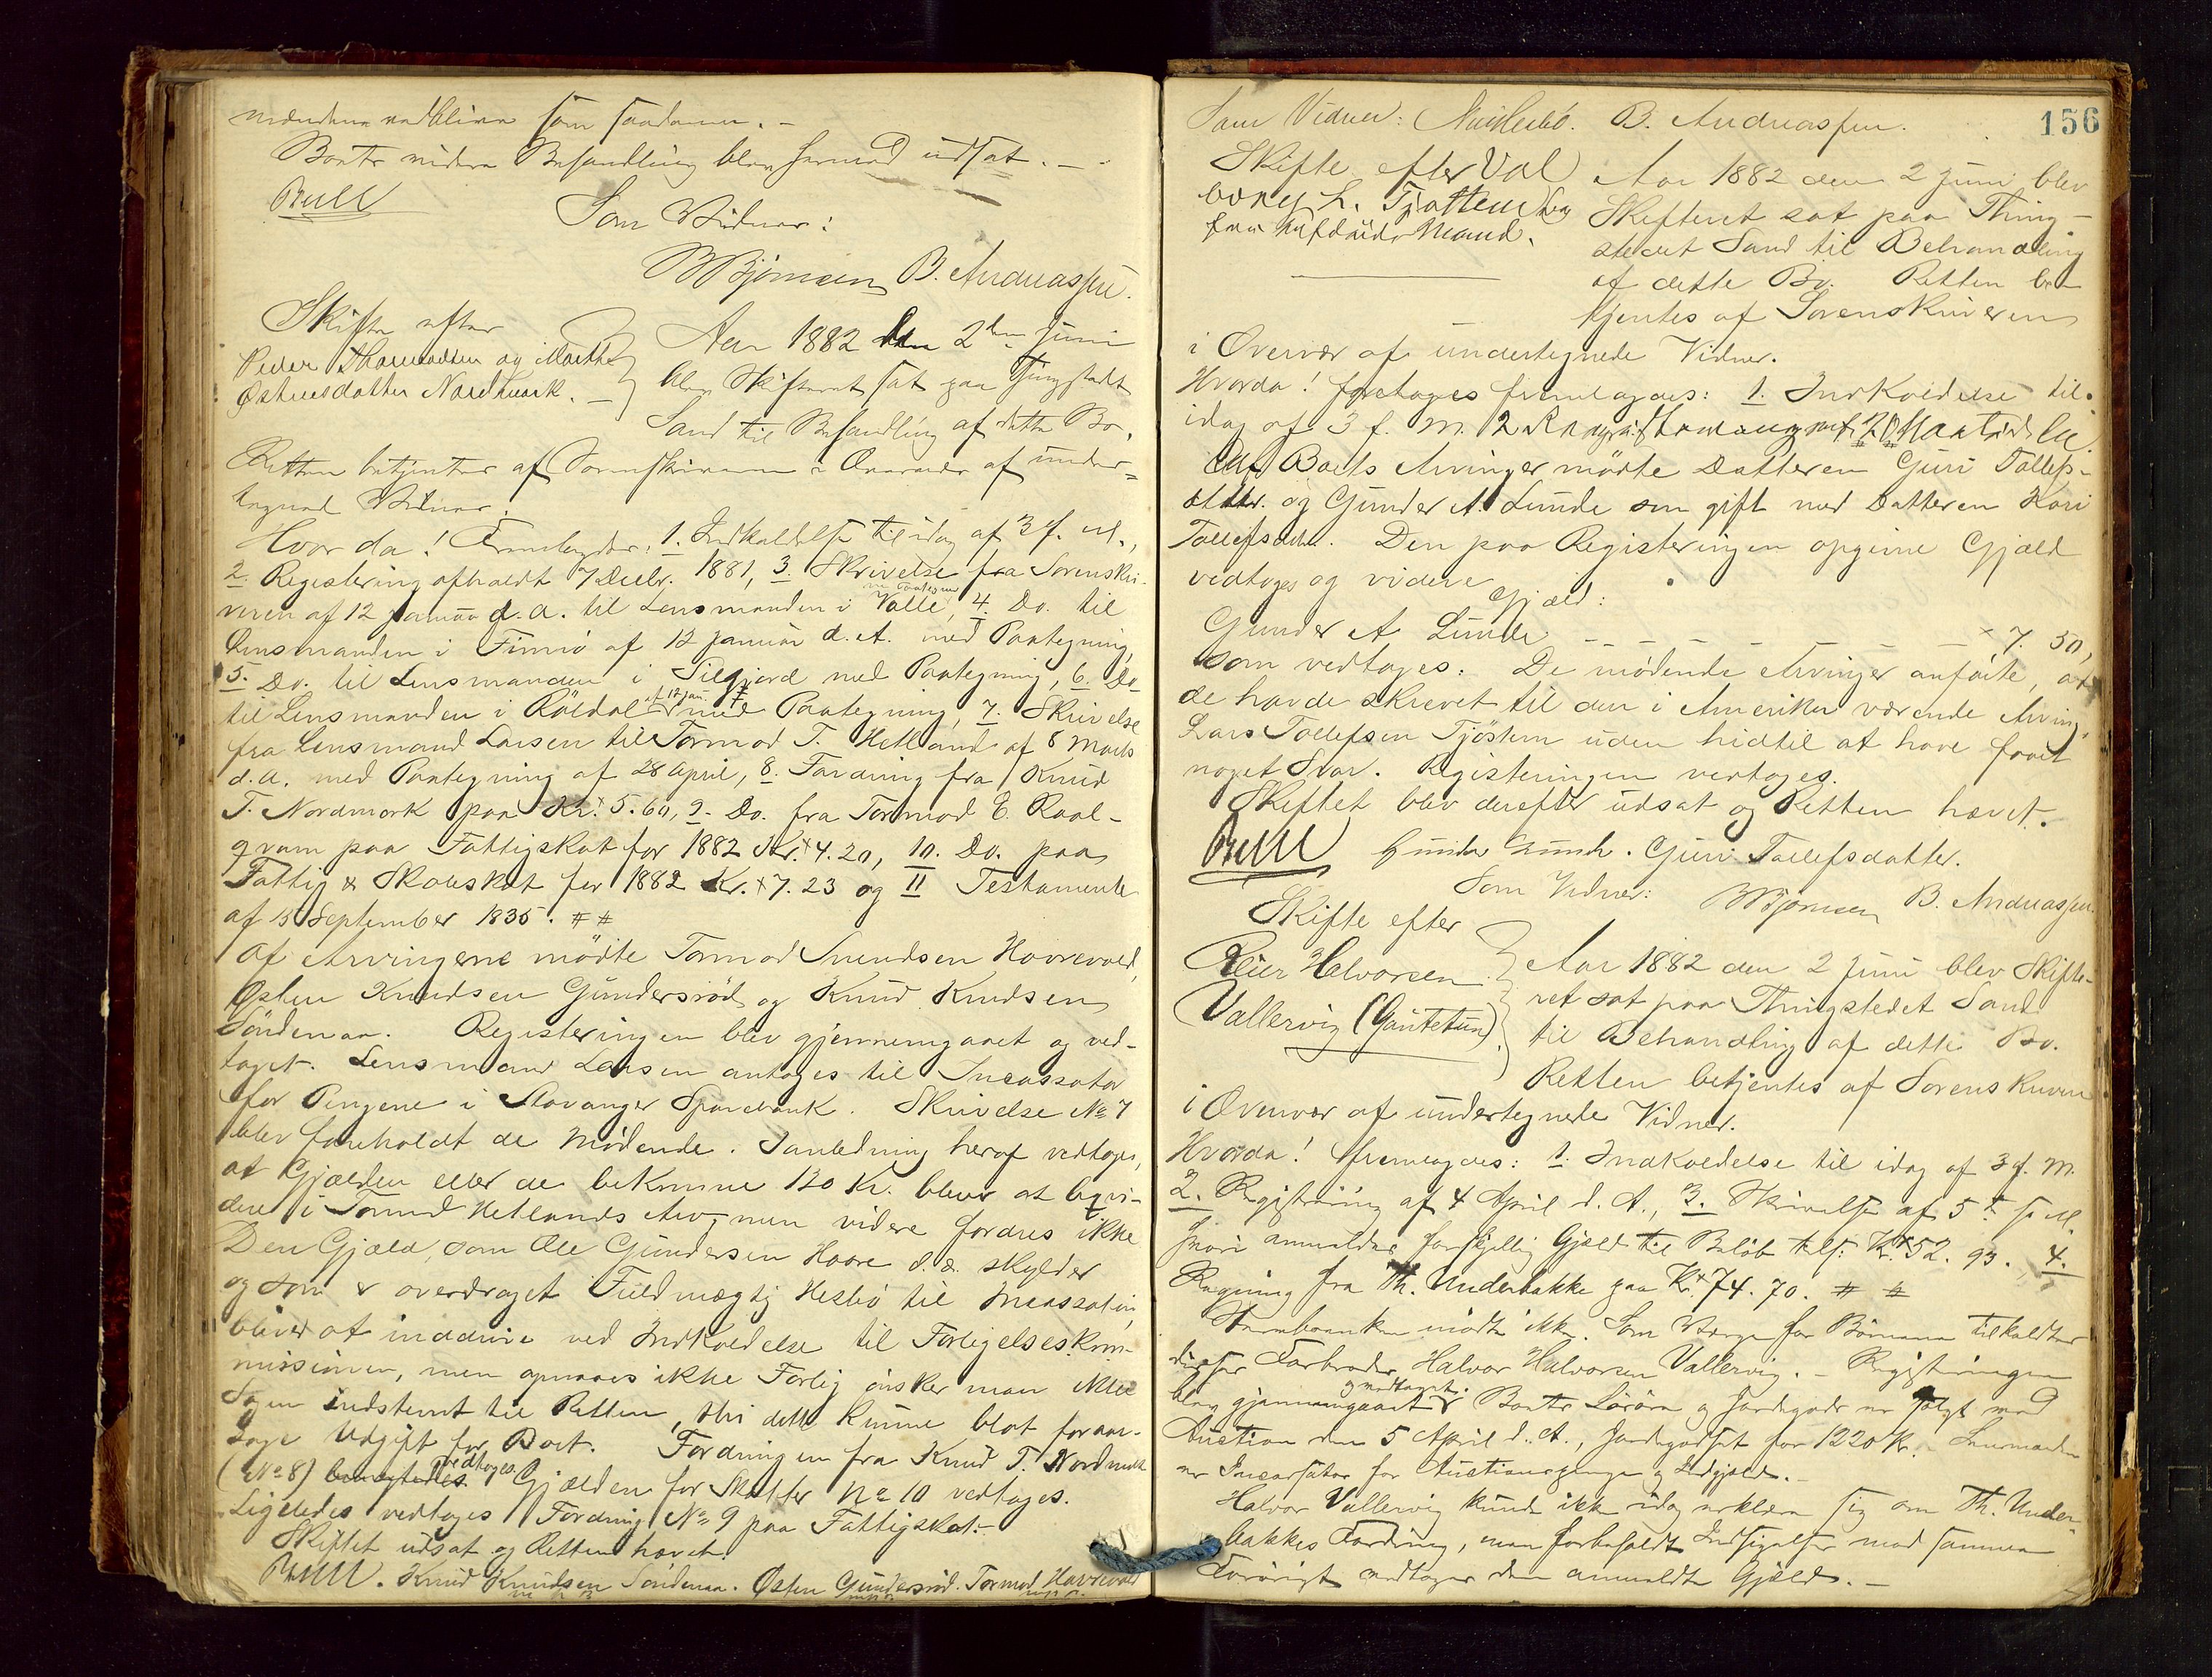 vedblive som saadanne. –
Boets videre Behandling blev hermed udsat. –
Bull
Som Vidner:
B. Andreassen.
Skifte efter
Peder Thormodsen og Marthe
Østensdatter Nordmark. –
Aar 1882 den 2den Juni
blev Skifteret sat paa Thingstedet
Sand til Behandling af dette Bo.
Retten betjentes af Sorenskriveren i Overvær af under-
tegnede Vidner.
Hvor da! Fremlagdes: 1. Indkaldelse til idag af 3 f. M.,
2. Registrering afholdt 7 Decbr. 1881, 3. Skrivelse fra Sorenskri-
veren af 12 Januar d. A. til Lensmanden i Valle, 4. Do. til
Lensmanden i Finnø af 12 Januar d. A. med Paategning,
5. Do. til Lensmanden i Silgjord med Paategning, 6. Do
til Lensmanden i Røldal af 12 Jan. med Paategning, 7. Skrivelse
fra Lensmand Larsen til Tormod T. Hetland af 8 Marts
d. A. med Paategning af 28 April, 8. Fordring fra Knud
T. Nordmork paa Kr. 5.60, 9. Do. fra Tormod E. Raal-
gvam paa Fattigskat for 1882 Kr. 4.20, 10. Do. paa
Fattig & Skoleskat for 1882 Kr. 7.23 og 11 Testamente
af 15 September 1835. # #
Af Arvingerne mødte Tormod Svendsen Hovrevold,
Østen Knudsen Gundersrød og Knud Knudsen
Søndenaa. Registeringen blev gjennemgaaet og ved-
taget. Lensmand Larsen antoges til Incassator
for Pengene i Stavanger Sparebank. Skrivelse No 7
blev foreholdt de Mødende. I anledning heraf vedtoges,
at Gjælden eller de bekomne 120 Kr. bliver at liqvi-
dere i Tormod Hetlands Arv, men videre fordres ikke
Den Gjæld, som Ole Gundersen Hovre d. æ. skylder
og som er overdraget Fuldmægtig Hesbø til Incassation
bliver at inddrive ved Indkaldelse til Forligelseskom-
missionen, men opnaaes ikke Forlig ønsker man ikke
Sagen indstevnt til Retten, thi dette kunne blot foraar-
sage Udgift for Boet. Fordringen fra Knud T. Nordmork
(No 8) vedtoges. Gjælden for Skatter No 10 vedtoges.
Ligeledes vedtoges Fordring No 9 paa Fattigskat. –
Skiftet udsat og Retten hævet.
Bull. Knud Knudsen Søndenaa. Østen Gundersrød. Tormod Hovrevold
156
Som Vidner: B. Andreassen.
Skifte efter Val
borg L. Tjøstem
Aar 1882 den 2 Juni blev
Skifteret sat paa Thing-
stedet Sand til Behandling
af dette Bo. Retten be-
tjentes af Sorenskriveren
i Overvær af undertegnede Vidner.
Hvorda! foretoges fremlagdes: 1. Indkaldelse til
idag af 3 f. M. 2
Af Boets Arvinger mødte Datteren Guri Tollefs-
datter. og Gunder A. Lunde som gift med Datteren Kari
Tollefsdatter. Den paa Registeringen opgivne Gjæld
vedtoges og videre Gjæld:
Gunder A Lunde – – – – – – 7. 50,
som vedtoges. De mødende Arvinger anførte, at
de havde skrevet til den i Amerika værende Arving
Lars Tollefsen Tjøstem uden hidtil at have faaet
noget Svar. Registeringen vedtoges.
Skiftet blev derefter udsat og Retten hævet.
Bull Gunder Lunde. Guri Tollefsdatter.
Som Vidner: B. Andreassen
Skifte efter
Peier Halvorsen
Vallervig (Gautetun).
Aar 1882 den 2 Juni blev Skifte-
ret sat paa Thingstedet Sand
til Behandling af dette Bo.
Retten betjentes af Sorenskriveren
i Overvær af undertegnede Vidner.
Hvorda! fremlagdes: 1. Indkaldelse til idag af 3 f. M.
2. Registrering af 4 April d. A., 3. Skrivelse af 5te f. M.
hvori anmeldes forskjellig Gjæld til Beløb tils. Kr. 52. 93. 4.
Regning fra Th. Underbakke paa Kr. 74. 70. # #
mødte ikke. Som Værge for Børnene tilkaldtes
disses Farbroder Halvor Halvorsen Vallervig. – Registreringen
blev gjennemgaaet og vedtaget. Boets Løsøre og Jordegods er solgt ved
Auction den 5 April d. A., Jordegodset for 1220 Kr. Lensmanden
er Incassator for Auctionspenge og Udgjæld. –
Halvor Vallervig kunde ikke idag erklære sig om Th. Under-
bakkes Fordring, men forbeholdt Indsigelser mod samme
Forøvrigt vedtoges den anmeldte Gjæld. –